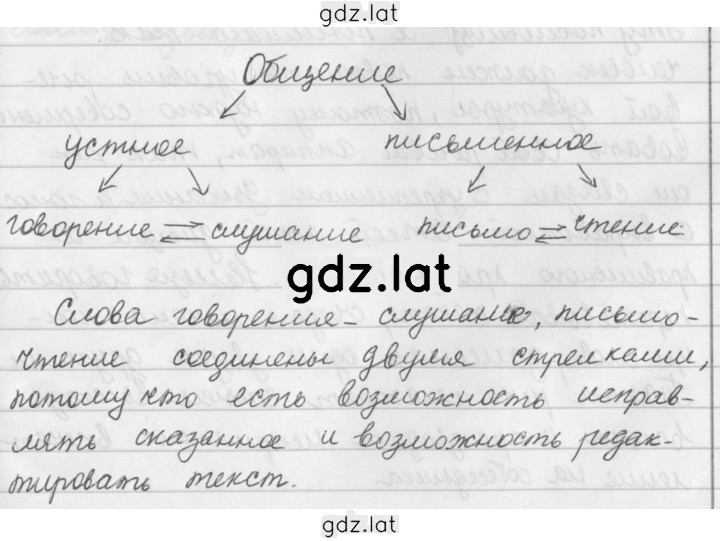 gdz.lat
Общение
устное письменное
говорение слушание письмо чтение
gdz.lat
Слова говорения - слушание, письмо-
чтение соединены двумя стрелками,
потому что есть возможность исправ-
лять сказанное и возможность редак-
тировать текст.
gdz.lat